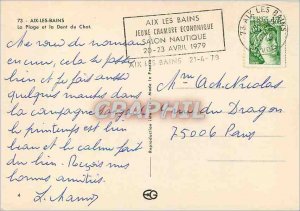 73 - AIX-LES-BAINS
La Plage et la Dent du Chat.
AIX LES BAINS
JEUNE CHAMBRE ECONOMIQUE
SALON NAUTIQUE
20-23 AVRIL 1979
AIX LES BAINS 21-4-79
73 AIX LES BAINS
Me voici de nouveau
en cure, cela se passe
bien et je fais aussi
quelques marches dans
la campagne
le printemps est bien
beau et le calme fait
du bien. Reçois mes
bonnes amitiés.
Mme Nicolas
rue du Dragon
75006 Paris
4